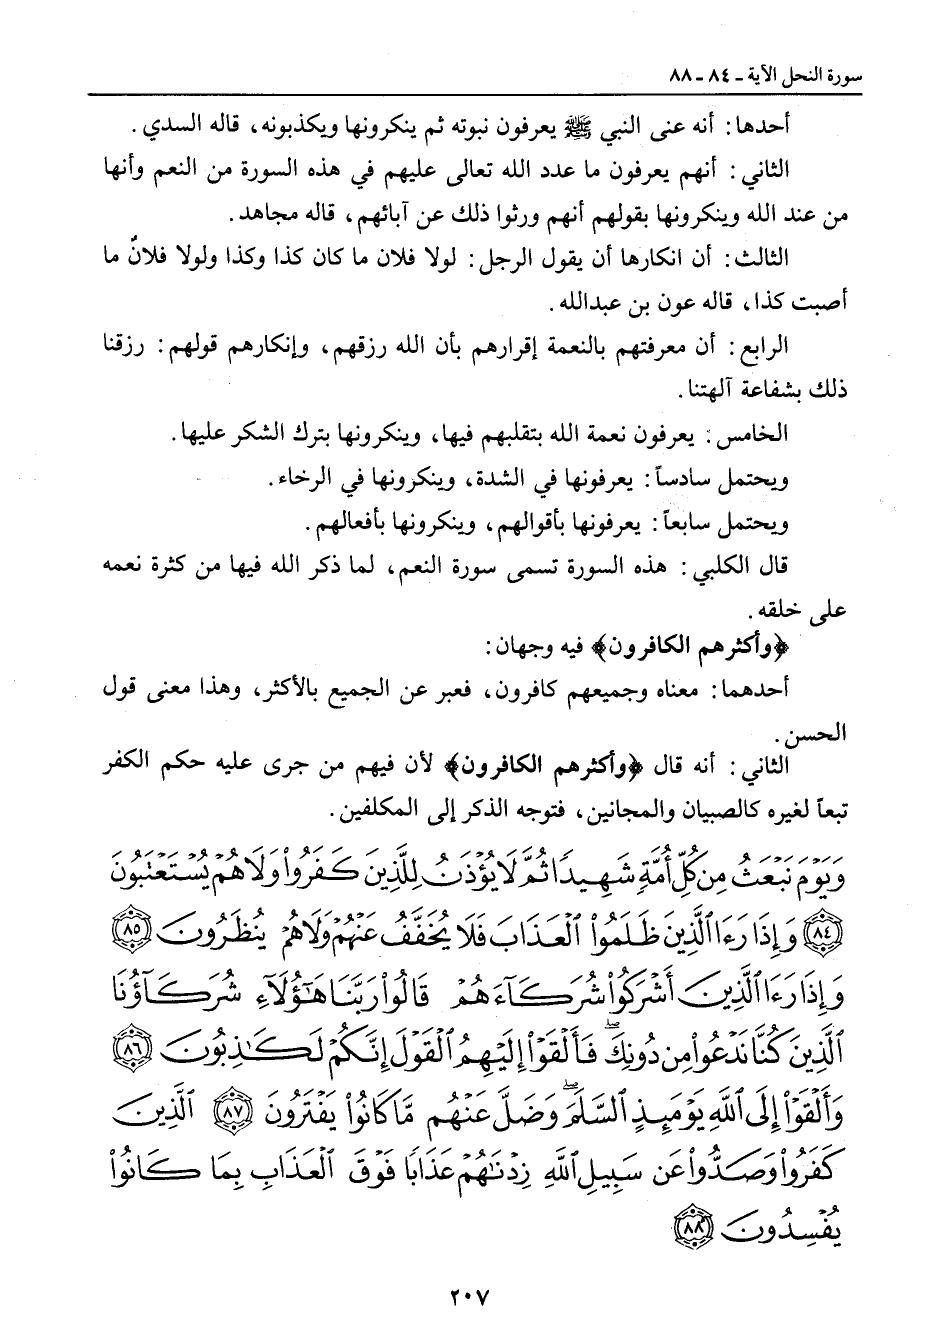 سورة النحل الآية ـ ٨٤ ـ ٨٨
أحدها: أنه عنى النبي ﷺ يعرفون نبوته ثم ينكرونها ويكذبونه، قاله السدي.
الثاني: أنهم يعرفون ما عدد الله تعالى عليهم في هذه السورة من النعم وأنها
من عند الله وينكرونها بقولهم أنهم ورثوا ذلك عن آبائهم، قاله مجاهد.
الثالث: أن انكارها أن يقول الرجل: لولا فلان ما كان كذا وكذا ولولا فلانٌ ما
أصبت كذا، قاله عون بن عبدالله.
الرابع: أن معرفتهم بالنعمة إقرارهم بأن الله رزقهم، وإنكارهم قولهم: رزقنا
ذلك بشفاعة آلهتنا.
الخامس: يعرفون نعمة الله بتقلبهم فيها، وينكرونها بترك الشكر عليها.
ويحتمل سادساً: يعرفونها في الشدة، وينكرونها في الرخاء.
ويحتمل سابعاً: يعرفونها بأقوالهم، وينكرونها بأفعالهم.
قال الكلبي: هذه السورة تسمى سورة النعم، لما ذكر الله فيها من كثرة نعمه
على خلقه.
﴿وأكثرهم الكافرون﴾ فيه وجهان:
أحدهما: معناه وجميعهم كافرون، فعبر عن الجميع بالأكثر، وهذا معنى قول
الحسن.
الثاني: أنه قال ﴿وأكثرهم الكافرون﴾ لأن فيهم من جرى عليه حكم الكفر
تبعاً لغيره كالصبيان والمجانين، فتوجه الذكر إلى المكلفين.
وَيَوْمَ نَبْعَثُ مِن كُلِّ أُمَّةٍ شَهِيدًا ثُمَّ لَا يُؤْذَنُ لِلَّذِينَ كَفَرُوا۟ وَلَا هُمْ يُسْتَعْتَبُونَ
﴿٨٤﴾ وَإِذَا رَءَا ٱلَّذِينَ ظَلَمُوا۟ ٱلْعَذَابَ فَلَا يُخَفَّفُ عَنْهُمْ وَلَا هُمْ يُنظَرُونَ ﴿٨٥﴾
وَإِذَا رَءَا ٱلَّذِينَ أَشْرَكُوا۟ شُرَكَآءَهُمْ قَالُوا۟ رَبَّنَا هَٰٓؤُلَآءِ شُرَكَآؤُنَا
ٱلَّذِينَ كُنَّا نَدْعُوا۟ مِن دُونِكَ ۖ فَأَلْقَوْا۟ إِلَيْهِمُ ٱلْقَوْلَ إِنَّكُمْ لَكَٰذِبُونَ ﴿٨٦﴾
وَأَلْقَوْا۟ إِلَى ٱللَّهِ يَوْمَئِذٍ ٱلسَّلَمَ ۖ وَضَلَّ عَنْهُم مَّا كَانُوا۟ يَفْتَرُونَ ﴿٨٧﴾ ٱلَّذِينَ
كَفَرُوا۟ وَصَدُّوا۟ عَن سَبِيلِ ٱللَّهِ زِدْنَٰهُمْ عَذَابًا فَوْقَ ٱلْعَذَابِ بِمَا كَانُوا۟
يُفْسِدُونَ ﴿٨٨﴾
٢٠٧